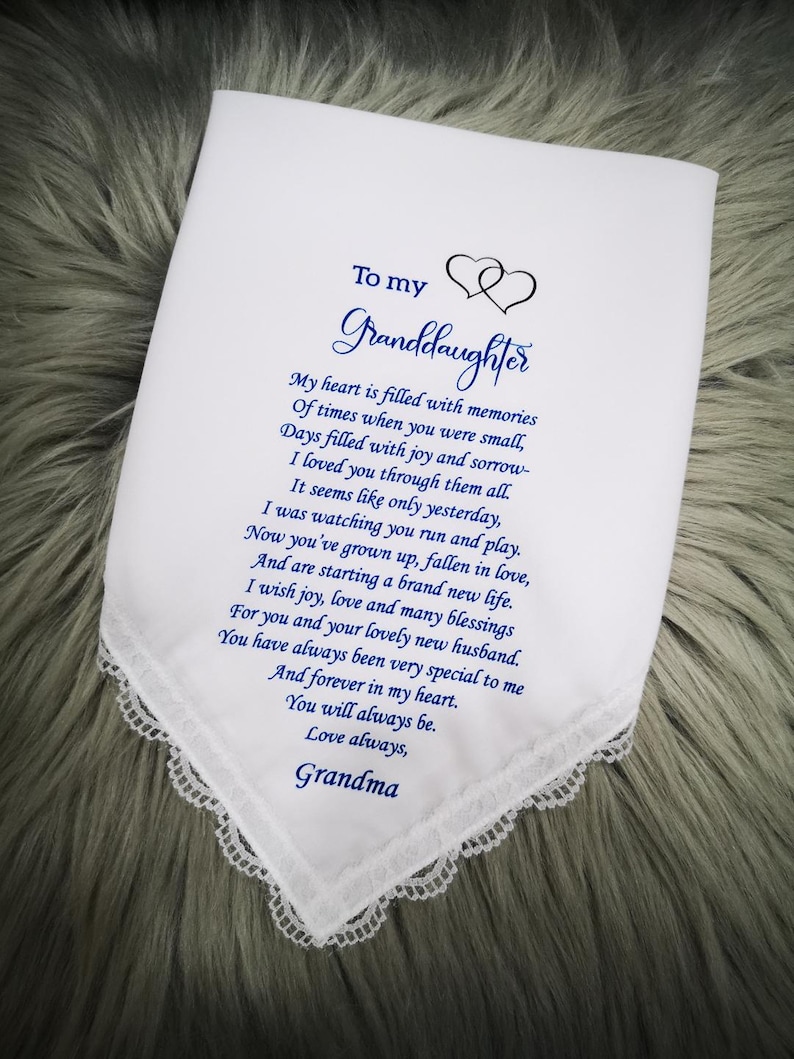 To my
Granddaughter
My heart is filled with memories
Of times when you were small,
Days filled with joy and sorrow-
I loved you through them all.
It seems like only yesterday,
I was watching you run and play.
Now you've grown up, fallen in love,
And are starting a brand new life.
I wish joy, love and many blessings
For you and your lovely new husband.
You have always been very special to me
And forever in my heart.
You will always be.
Love always,
Grandma